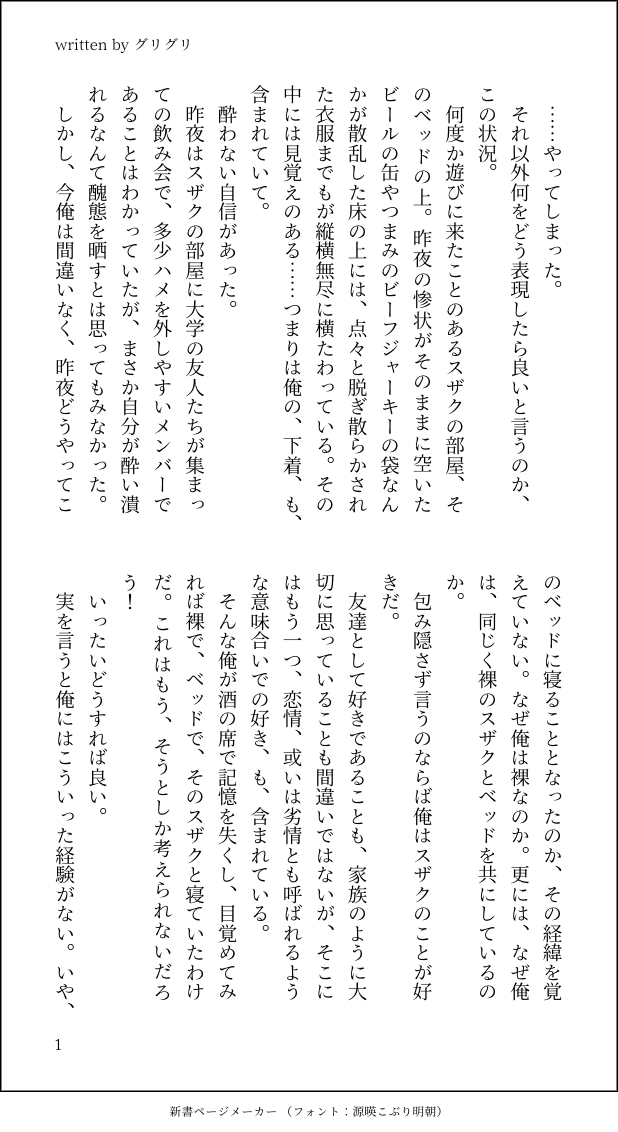 written by グリグリ
……やってしまった。
それ以外何をどう表現したら良いと言うのか、
この状況。
何度か遊びに来たことのあるスザクの部屋、そ
のベッドの上。昨夜の惨状がそのままに空いた
ビールの缶やつまみのビーフジャーキーの袋なん
かが散乱した床の上には、点々と脱ぎ散らかされ
た衣服までもが縦横無尽に横たわっている。その
中には見覚えのある……つまりは俺の、下着、も、
含まれていて。
酔わない自信があった。
昨夜はスザクの部屋に大学の友人たちが集まっ
ての飲み会で、多少ハメを外しやすいメンバーで
あることはわかっていたが、まさか自分が酔い潰
れるなんて醜態を晒すとは思ってもみなかった。
しかし、今俺は間違いなく、昨夜どうやってこ
のベッドに寝ることとなったのか、その経緯を覚
えていない。なぜ俺は裸なのか。更には、なぜ俺
は、同じく裸のスザクとベッドを共にしているの
か。
包み隠さず言うのならば俺はスザクのことが好
きだ。
友達として好きであることも、家族のように大
切に思っていることも間違いではないが、そこに
はもう一つ、恋情、或いは劣情とも呼ばれるよう
な意味合いでの好き、も、含まれている。
そんな俺が酒の席で記憶を失くし、目覚めてみ
れば裸で、ベッドで、そのスザクと寝ていたわけ
だ。これはもう、そうとしか考えられないだろ
う！
いったいどうすれば良い。
実を言うと俺にはこういった経験がない。いや、
1
新書ページメーカー（フォント：源暎こぶり明朝）